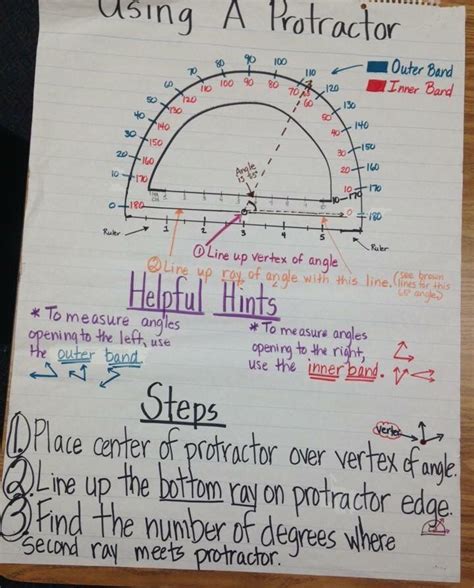 Using A Protractor
Outer Band
Inner Band
70 80 90 100 110
60 120
50 130
40 140
30 150
20 160
10 170
0 180
110 100 90 80 70
120 60
130 50
140 40
150 30
160 20
170 10
180 0
Angle
is
Ruler 1 2 3 4 5 Ruler
① Line up vertex of angle
② Line up ray of angle with this line. (see brown
lines for this
angle)
Helpful Hints
* To measure angles
opening to the left, use
the outer band.
* To measure angles
opening to the right,
use the inner band.
Steps
vertex
① Place center of protractor over vertex of angle.
② Line up the bottom ray on protractor edge.
③ Find the number of degrees where
second ray meets protractor.